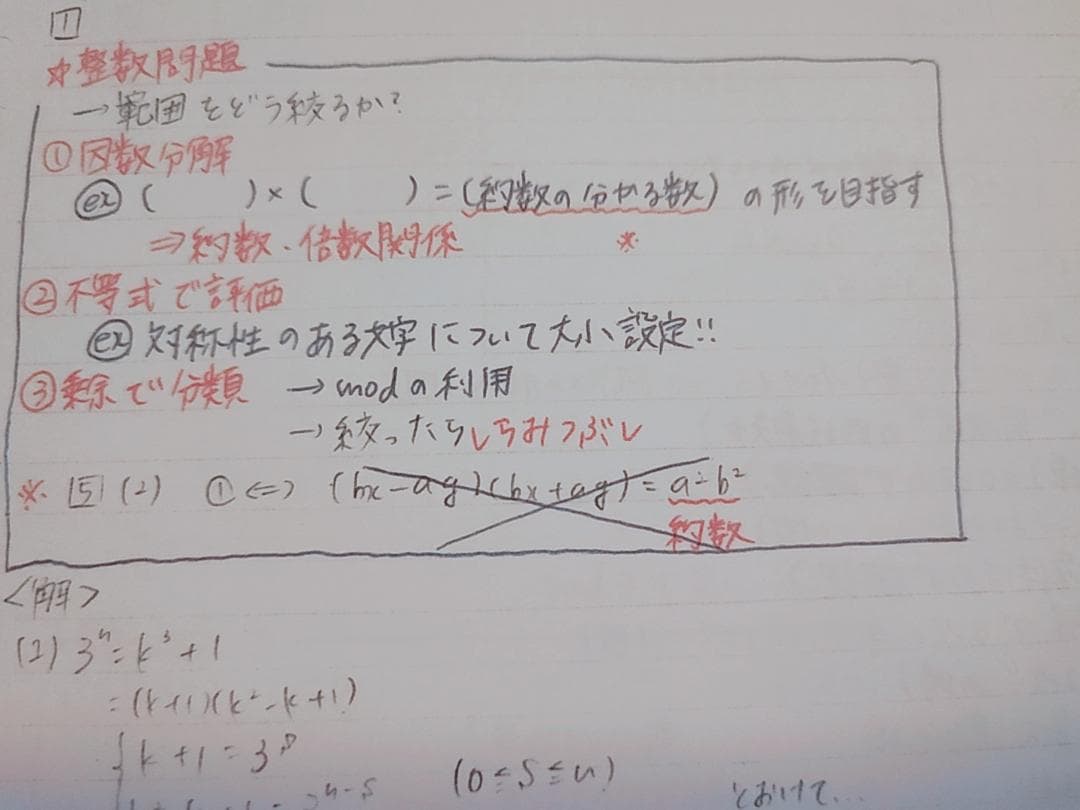 1
☆整数問題
→範囲をどう絞るか?
①因数分解
ex ( )×( )=(約数の分かる数)の形を目指す
⇒約数・倍数関係 ※
②不等式で評価
ex 対称性のある文字について大小設定!!
③剰余で分類 →modの利用
→絞ったらしらみつぶし
※ 5 (2) ①⇔ (bx-ay)(bx+ay)=a²-b²
約数
<解>
(2) 3ⁿ=k³+1
=(k+1)(k²-k+1)
k+1=3ˢ
(0≦S≦n)
とおけて...